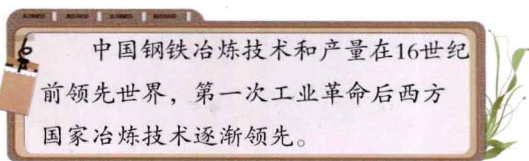 中国钢铁冶炼技术和产量在16世纪
前领先世界，第一次工业革命后西方
国家冶炼技术逐渐领先。